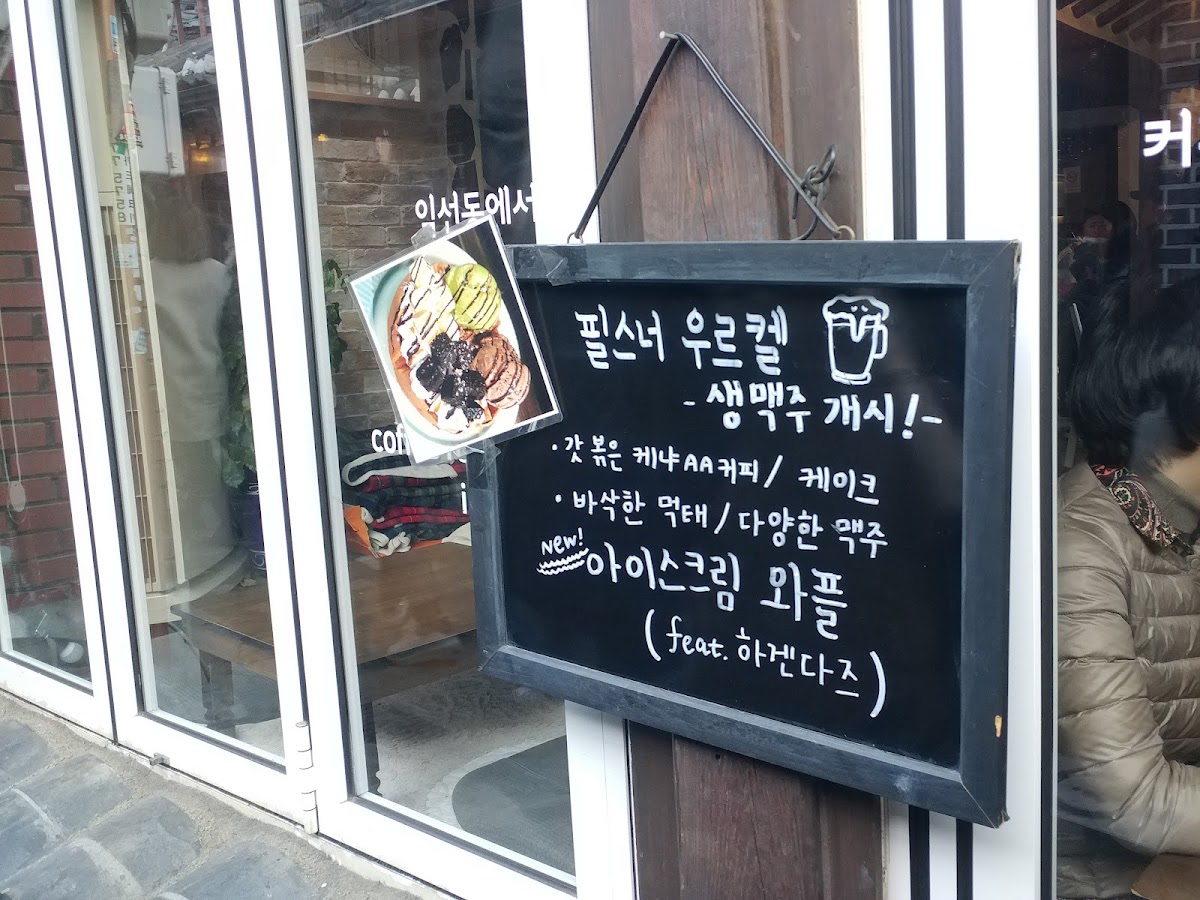 익선동에서
필스너 우르켈
- 생맥주 개시! -
· 갓 볶은 케냐AA커피 / 케이크
· 바삭한 먹태 / 다양한 맥주
New!
아이스크림 와플
(feat. 하겐다즈)
cof
i
커